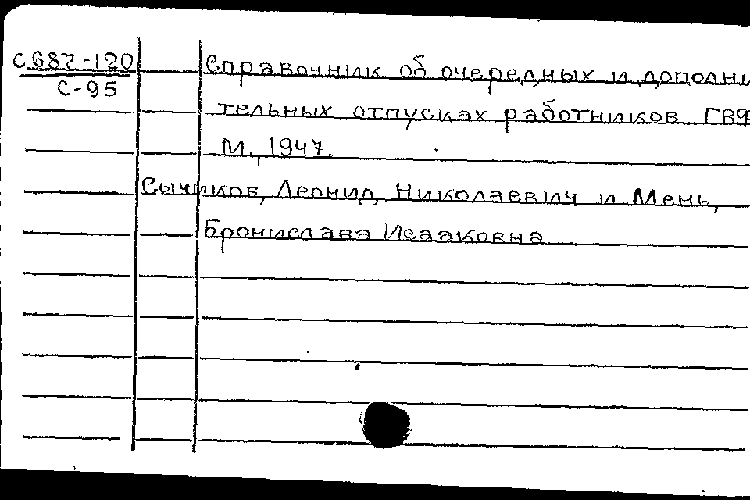 С.687-120
С-95
Справочник об очередных и дополни
тельных отпусках работников ГВФ
М., 1947
Сычиков, Леонид Николаевич и Мень,
Бронислава Исааковна